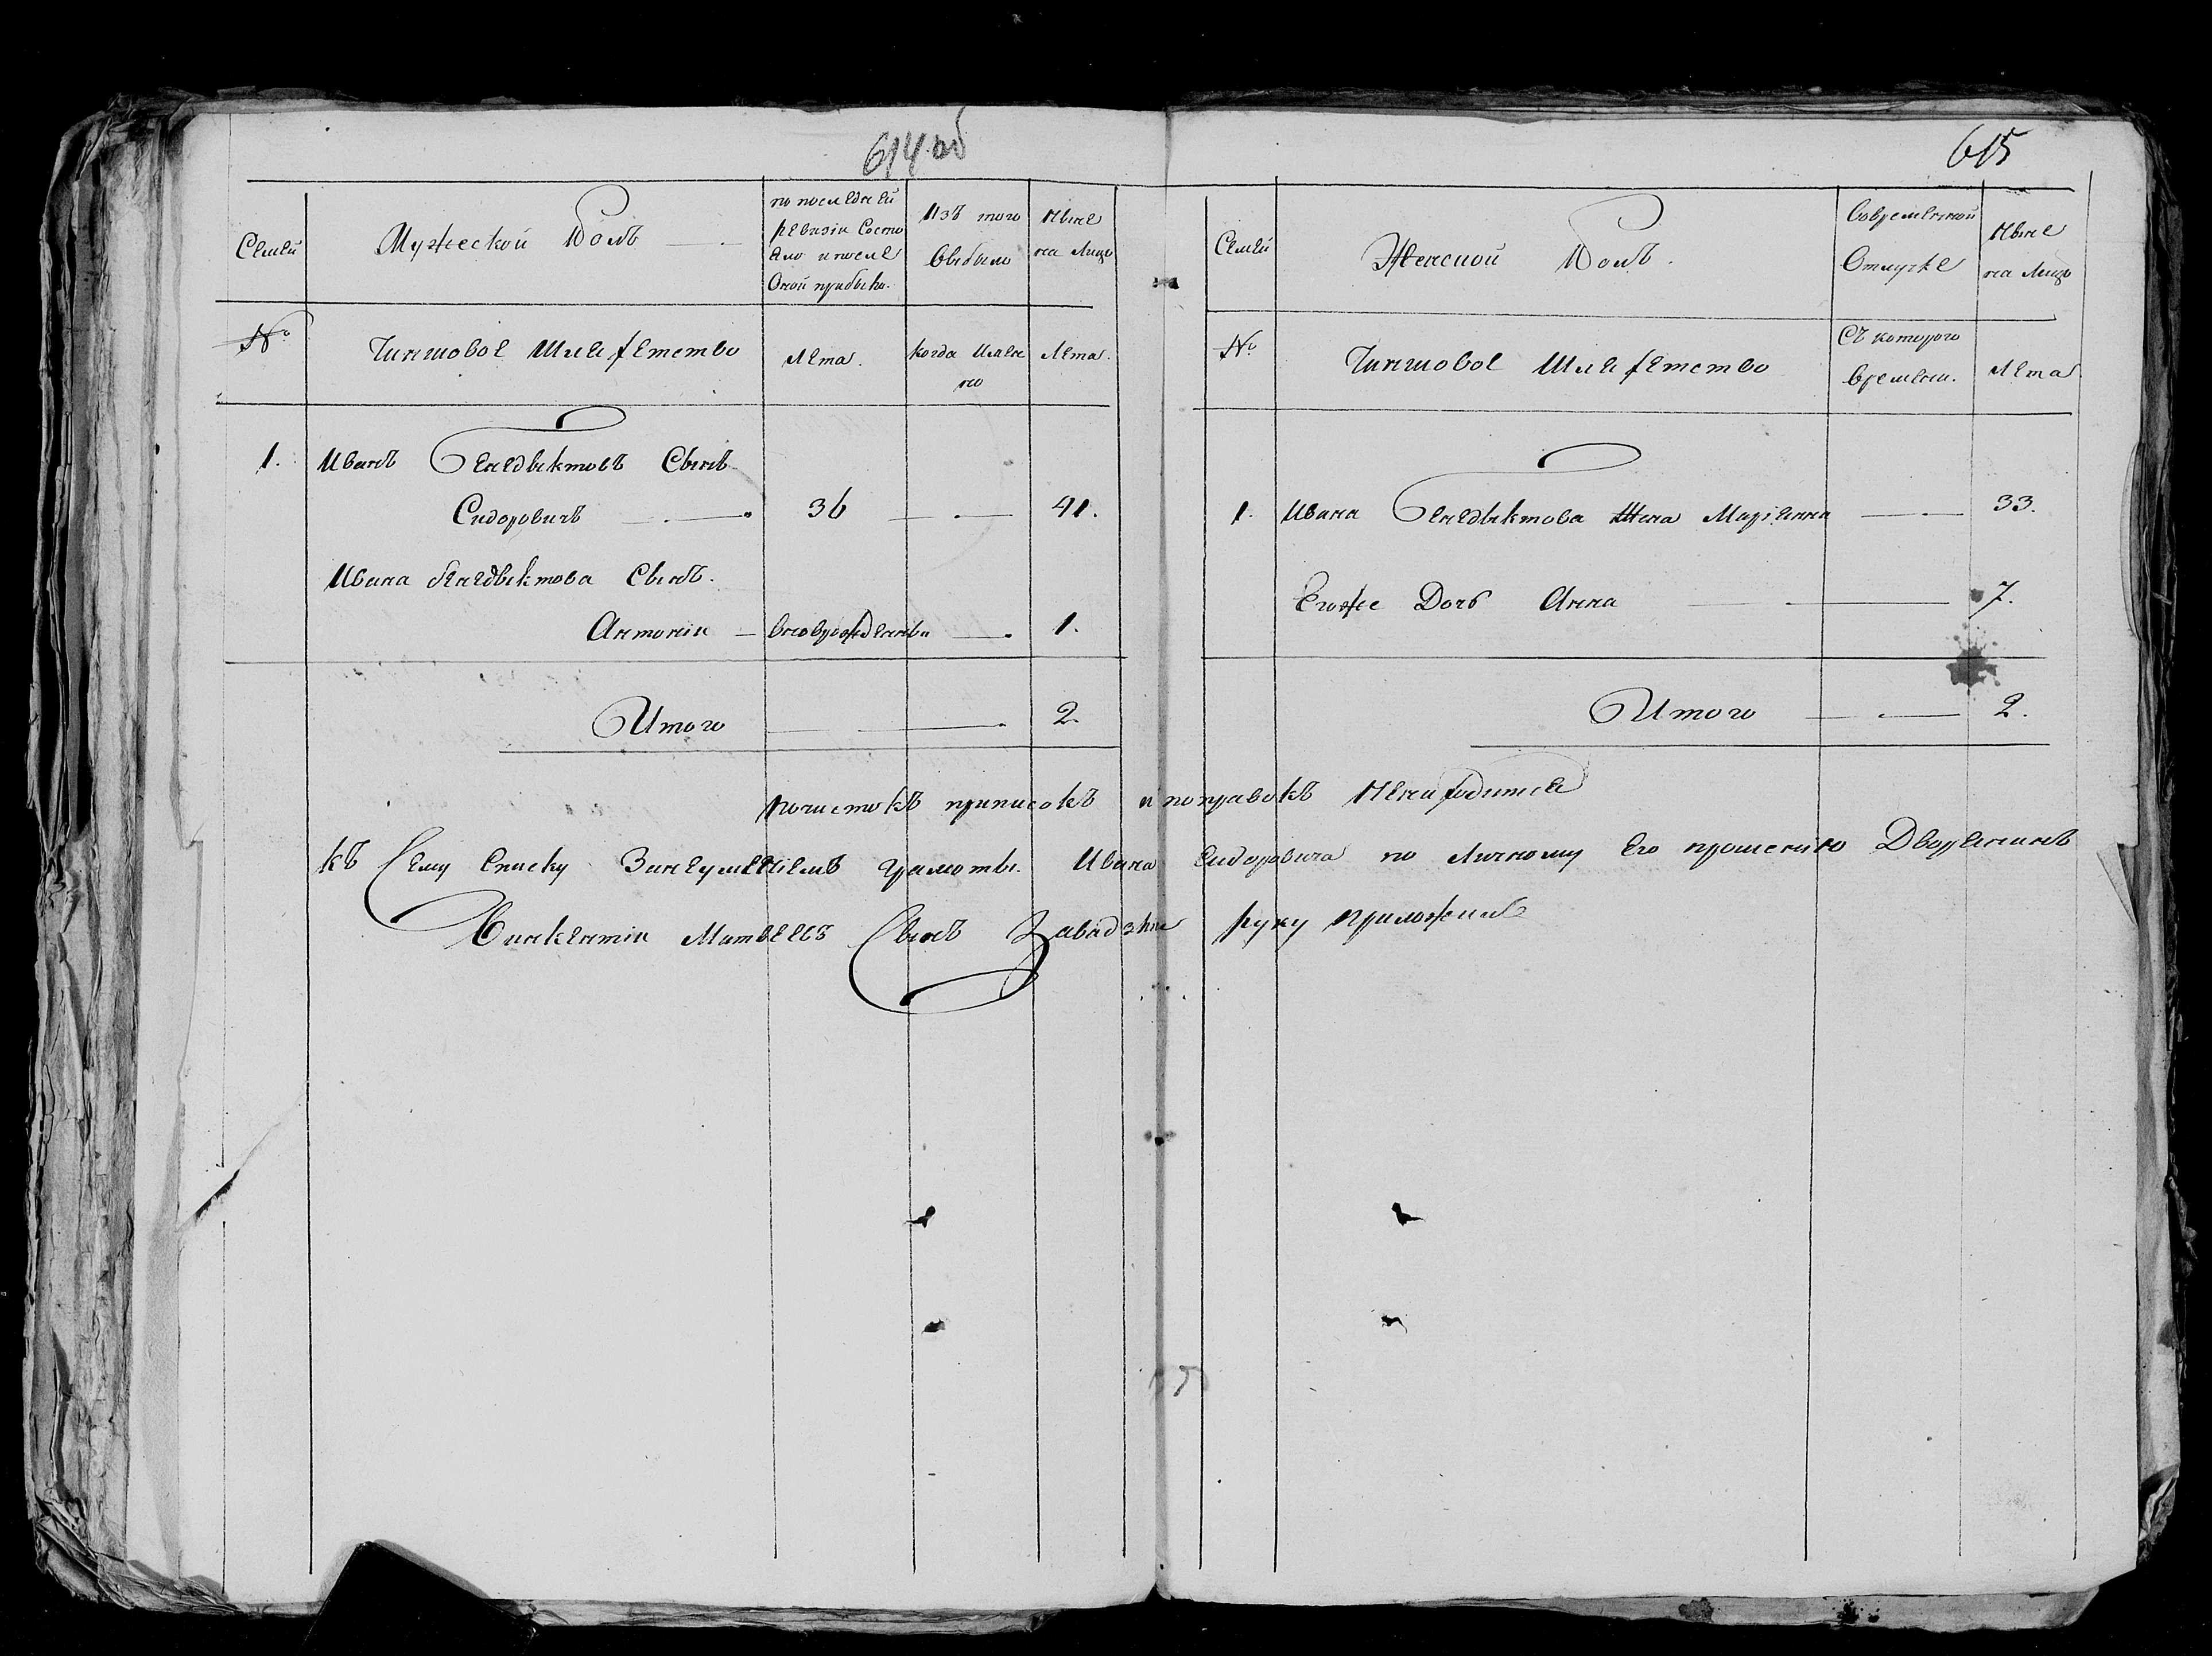 614 об
Семьи
Мужеской Полъ
по последней
ревизіи Состо
яло и после
Оной прибыло.
Изъ того
Выбыло
Ныне
на Лицо
№
Чиншовое Шляхетство
Лета.
когда Имен
но
Лета.
1. Иванъ Бенедыктовъ Сынъ
Сидоровичъ 36 41.
Ивана Бенедыктова Сынъ.
Антоній вновьрожденный 1.
Итого 2.
615
Семьи
Женской Полъ.
Вовременной
Отлучке
Ныне
на Лицо
№
Чиншовое Шляхетство
Съ которого
времени.
Лета
1. Ивана Бенедыктова Жена Маріянна 33.
Егоже Дочь Анна 7.
Итого 2.
почистокъ приписокъ и поправокъ Ненаходится
къ Сему Списку Занеумениемъ грамоты Ивана Сидоровича по Личному Его прошенію Дворянинъ
Матвеевъ Сынъ руку приложилъ